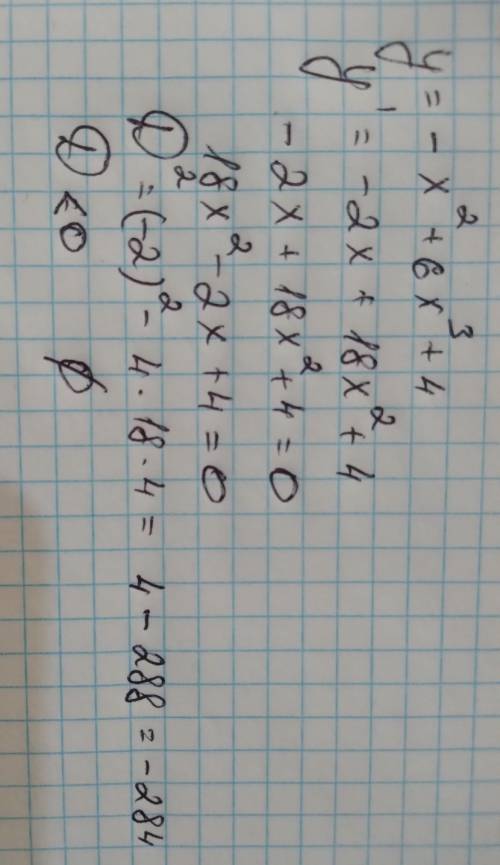 y = - x² + 6x³ + 4
y' = - 2x + 18x² + 4
- 2x + 18x² + 4 = 0
18x² - 2x + 4 = 0
D² = (-2)² - 4 · 18 · 4 = 4 - 288 = - 284
D < 0 ∅